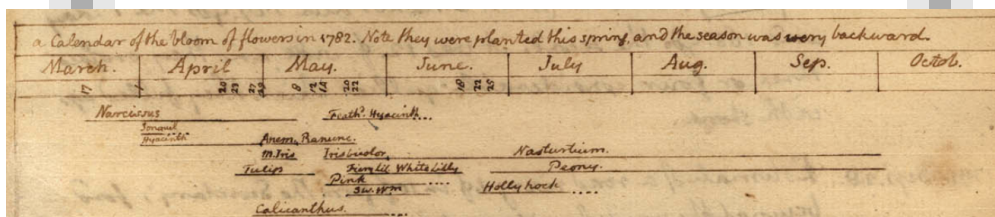 a Calendar of the bloom of flowers in 1782. Note they were planted this spring, and the season was very backward.
March. April May. June. July Aug. Sep. Octob.
17 1 22 8 12 20 22 18 22 25
Narcissus Feath? Hyacinth
Jonquil
Hyacinth Anem. Ranunc.
m.Iris Irisbicolor Nasturtium.
Tulip White Lilly Peony.
Pink
Sw. Wm Holly hock
Calicanthus.